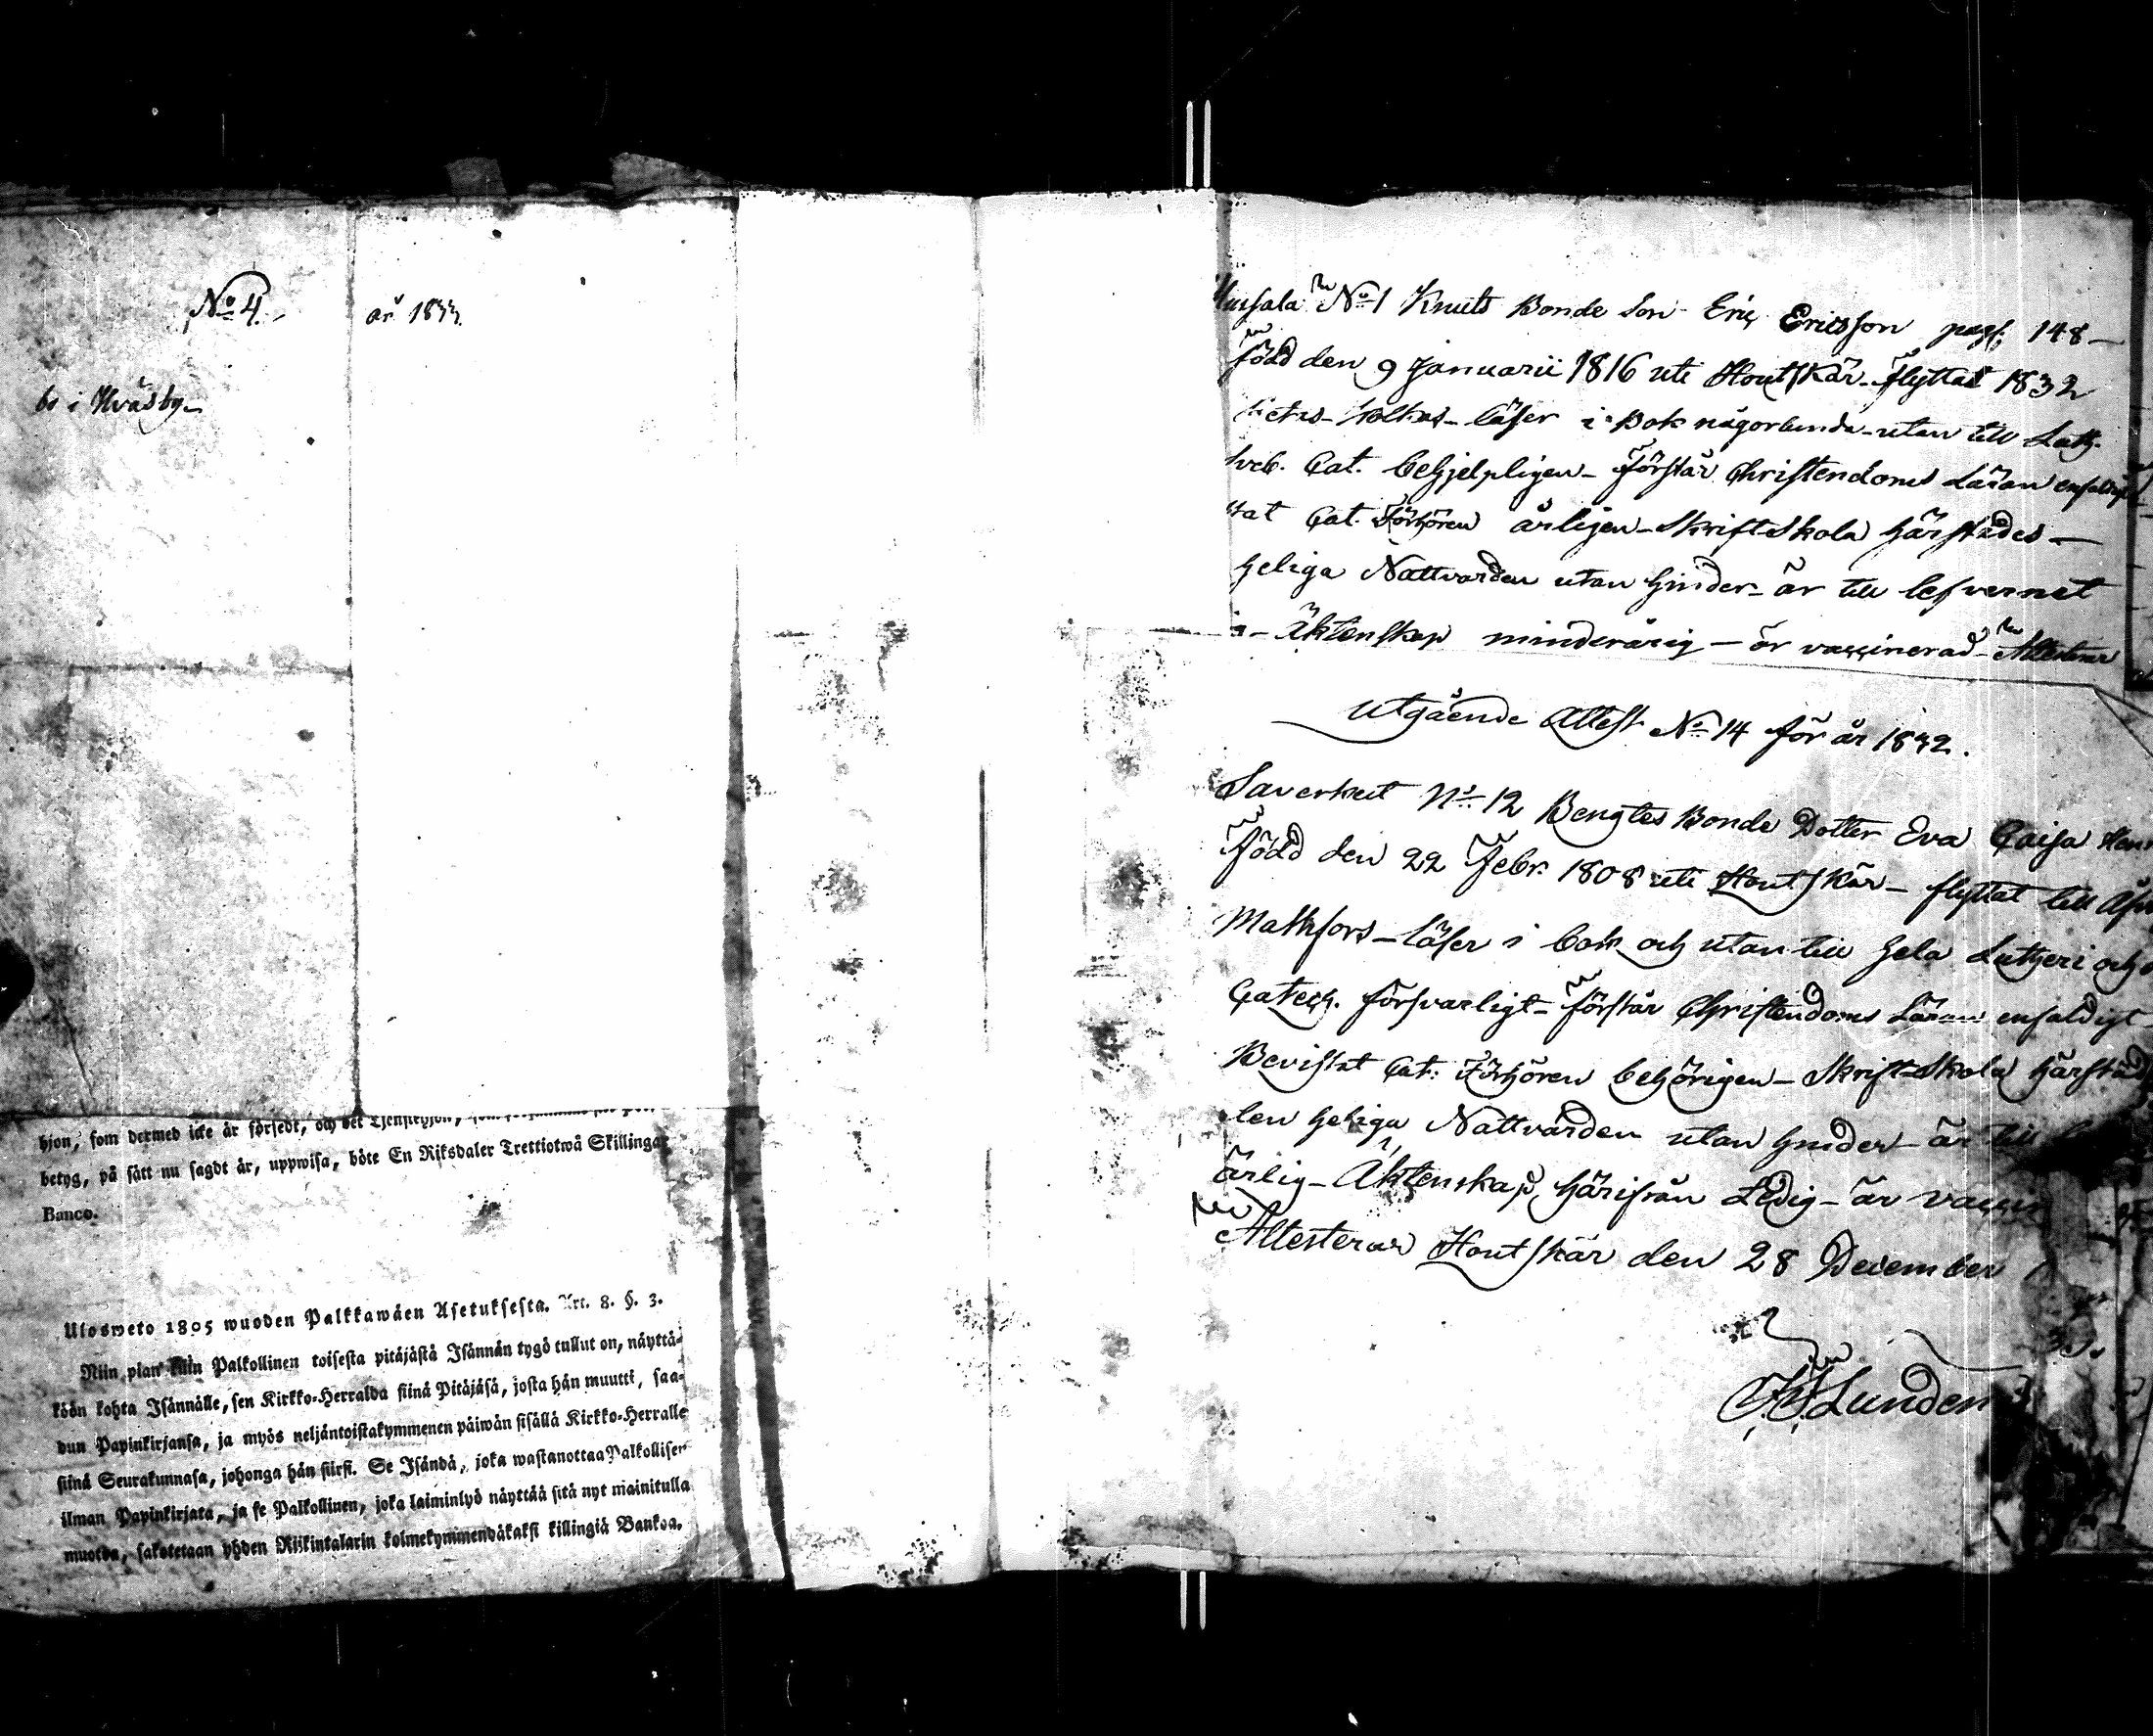 No 4.
år 1833.
bs i Hväsby
hjon, som dermed icke är försedt, och det
betyg, på sätt nu sagdt är, uppwisa, böte En Riksdaler Trettiotwå Skillingar
Banco.
Ulosweto 1805 wuoden Palkkawäen Asetuksesta. Art. 8. §. 3.
Niin pian kuin Palkollinen toisesta pitäjästä Isännän tygö tullut on, näyttä-
köön kohta Isännälle, sen Kirkko-Herralda siinä Pitäjäsä, josta hän muutti, saa-
dun Papinkirjansa, ja myös neljäntoistakymmenen päiwän sisällä Kirkko-Herralle
siinä Seurakunnasa, johonga hän siirsi. Se Isändä, joka wastanottaa Palkollisen
ilman Papinkirjata, ja se Palkollinen, joka laiminlyö näyttää sitä nyt mainitulla
muoton, sakotetaan yhden Riikintalarin kolmekymmendäkaksi killingiä Bankoa.
No 1 Knuts Bonde Son Eric Ericsson pag: 148
född den 9 Januarii 1816 uti Houtskär flyttat 1832
läser i Bok någorlunda utan till Luth.
Sveb. Cat. behjelpligen förstår Christendoms Läran enfaldigt
Cat. Förhören årligen Skriftskola härstädes
heliga Nattvarden utan hinder är till lefvernet
Äktenskap minderårig är vaccinerad Attesterar
Utgående Attest No 14 för år 1832.
Saverkeit No 12 Bengtes Bonde Dotter Eva Caisa
född den 22 Febr. 1808 uti Houtskär flyttat till
Mathfors läser i bok och utan till hela Lutheri och
Catech. försvarligt förstår Christendoms Läran enfaldigt
Bevistat Cat: Förhören behörigen Skriftskola härstäd
den heliga Nattvarden utan hinder är till
ärlig Äktenskap härifrån Ledig är vaccin
Attesterar Houtskär den 28 December
Lunden